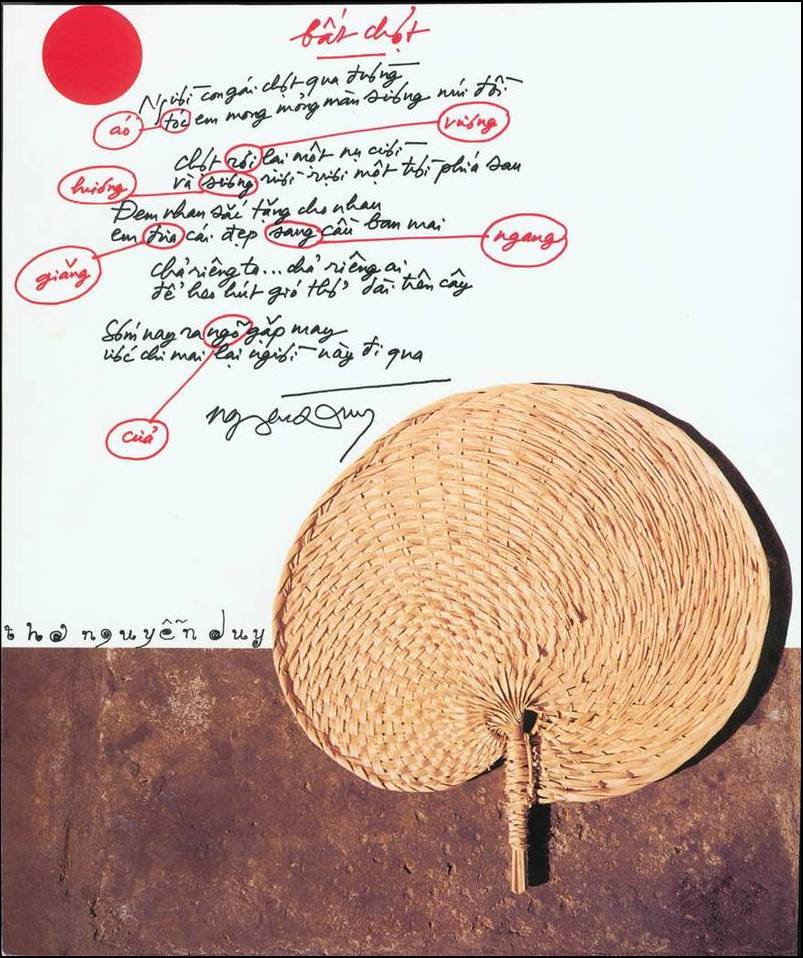 bất chợt
Người con gái chợt qua đường
tóc em mong mỏng màn sương núi đồi
áo
vương
chợt rơi lại một nụ cười
và sương rười rượi một trời phía sau
hương
Đem nhan sắc tặng cho nhau
em đưa cái đẹp sang cầu ban mai
ngang
giăng
chả riêng ta... chả riêng ai
để heo hút gió thở dài trên cây
Sớm nay ra ngõ gặp may
ước chi mai lại người này đi qua
cửa
nguyễn duy
thơ nguyễn duy